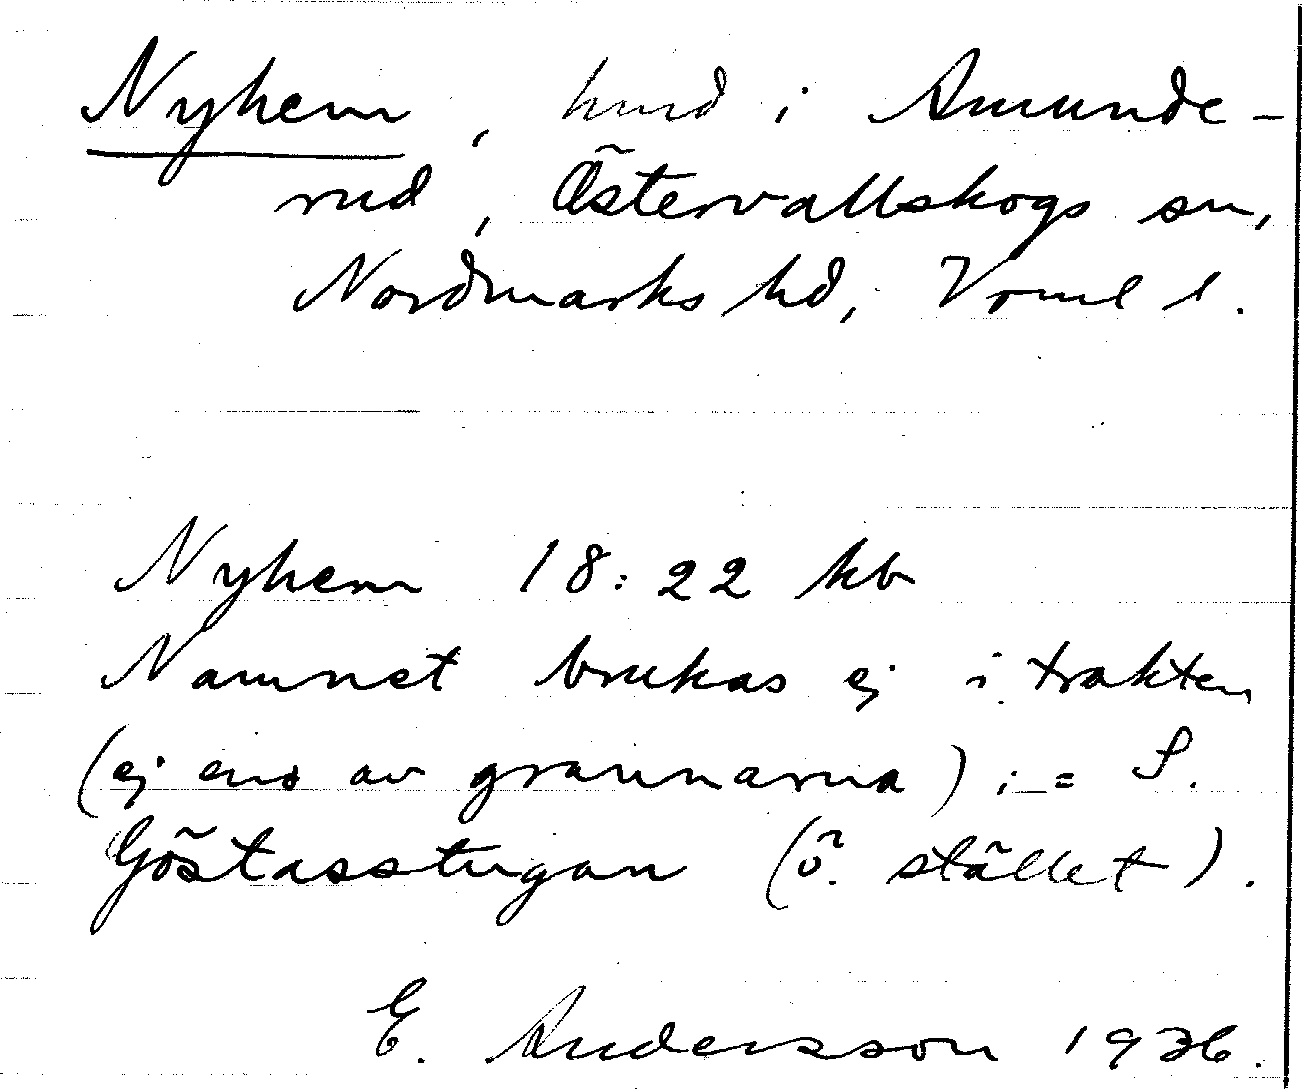 Nyhem, hmd i Amunde-
rud, Östervallskogs sn,
Nordmarks hd, Vrml l.
Nyhem 18:22 kb
Namnet brukas ej i trakten
(ej ens av grannarna); = S.
Göstasstugan (ö. stället).
E. Andersson 1936.